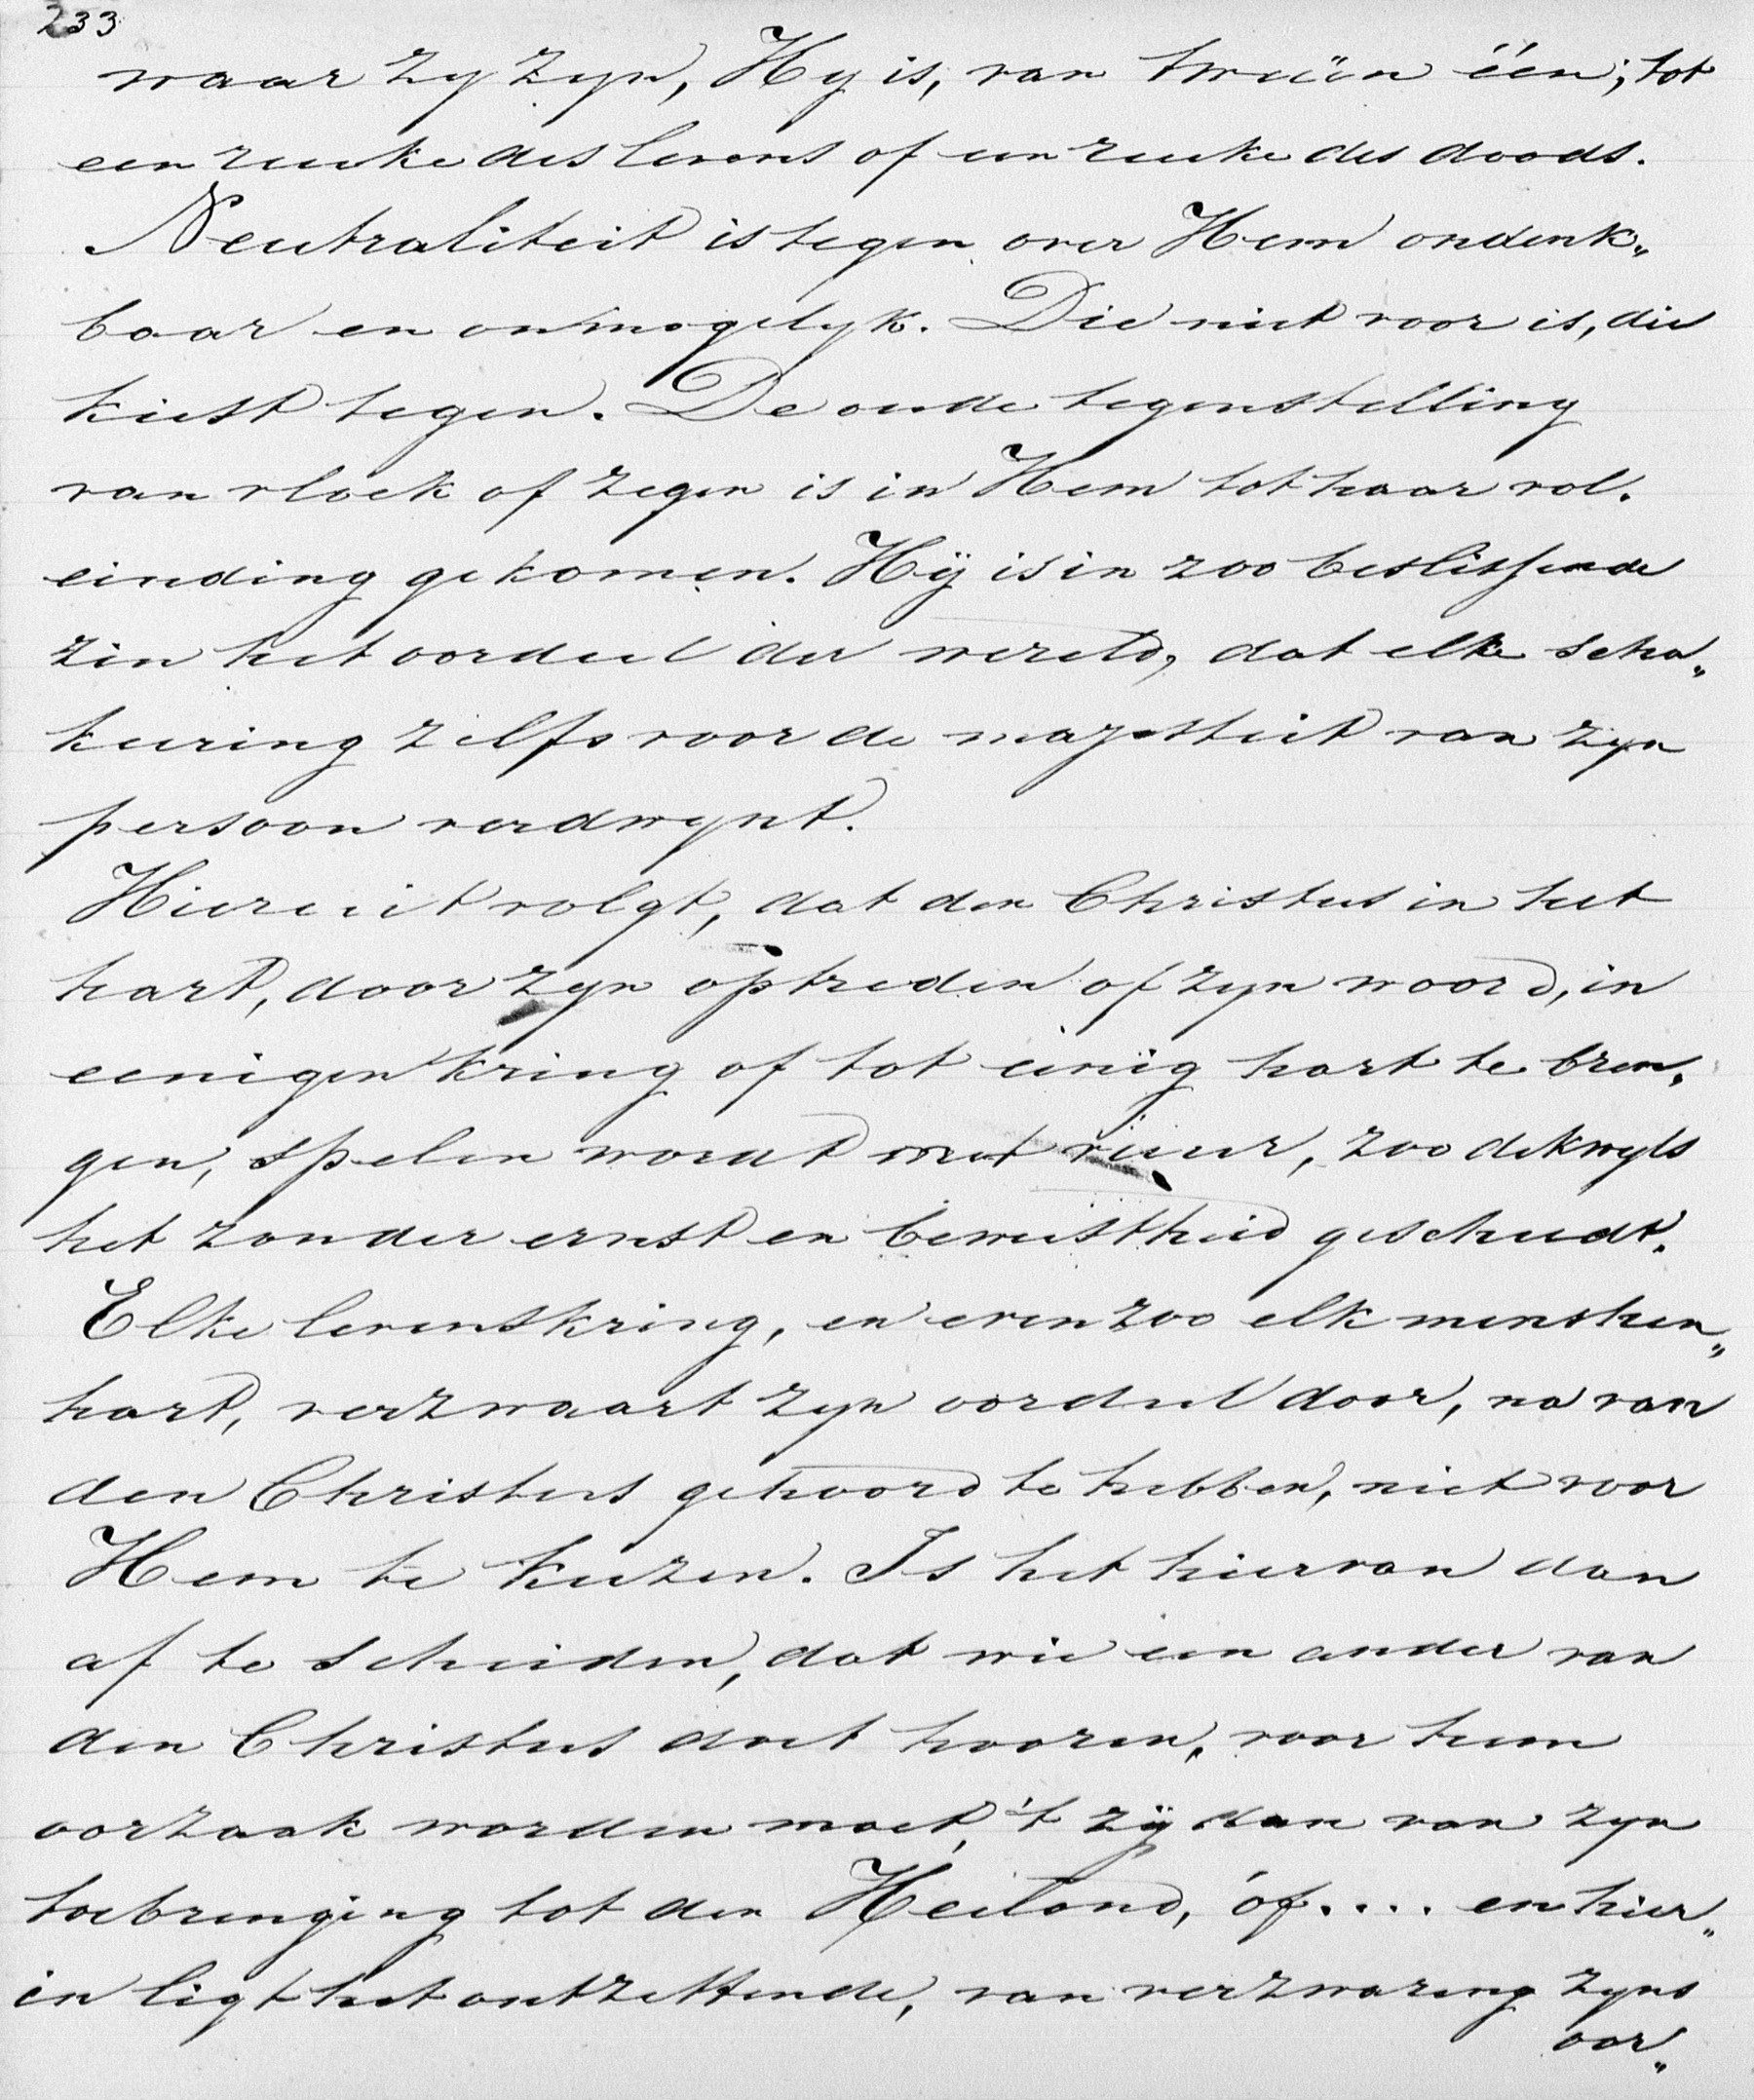 233
waar zy zyn, Hy is, van tweeën één; tot
een reuke des levens of een reuke des doods.
Neutraliteit is tegen over Hem ondenk„
baar en onmogelyk. Die niet voor is, die
kiest tegen. De oude tegenstelling
van vloek of zegen is in Hem tot haar vol„
einding gekomen. Hÿ is in zoo beslissende
zin het oordeel der wereld, dat elke scha„
keering zelfs voor de majesteit van zyn
persoon verdwynt.
Hieruit volgt, dat den Christus in het
hart, door zyn optreden of zyn woord, in
eenigen kring of tot einig hart te bren„
gen, spelen wordt met vuur, zoo dikwyls
het zonder ernst en bewustheid geschiedt.
Elke levenskring, en evenzoo elk menschen„
hart, verzwaart zyn oordeel door, na van
den Christus gehoord te hebben, niet voor
Hem te kiezen. Is het hiervan dan
af te scheiden, dat wie een ander van
den Christus doet hooren, voor hem
oorzaak worden moet, 't zÿ dan van zyn
toebrenging tot den Heiland, óf.... en hier„
in ligt het ontzettende, van verzwaring zyns
oor„